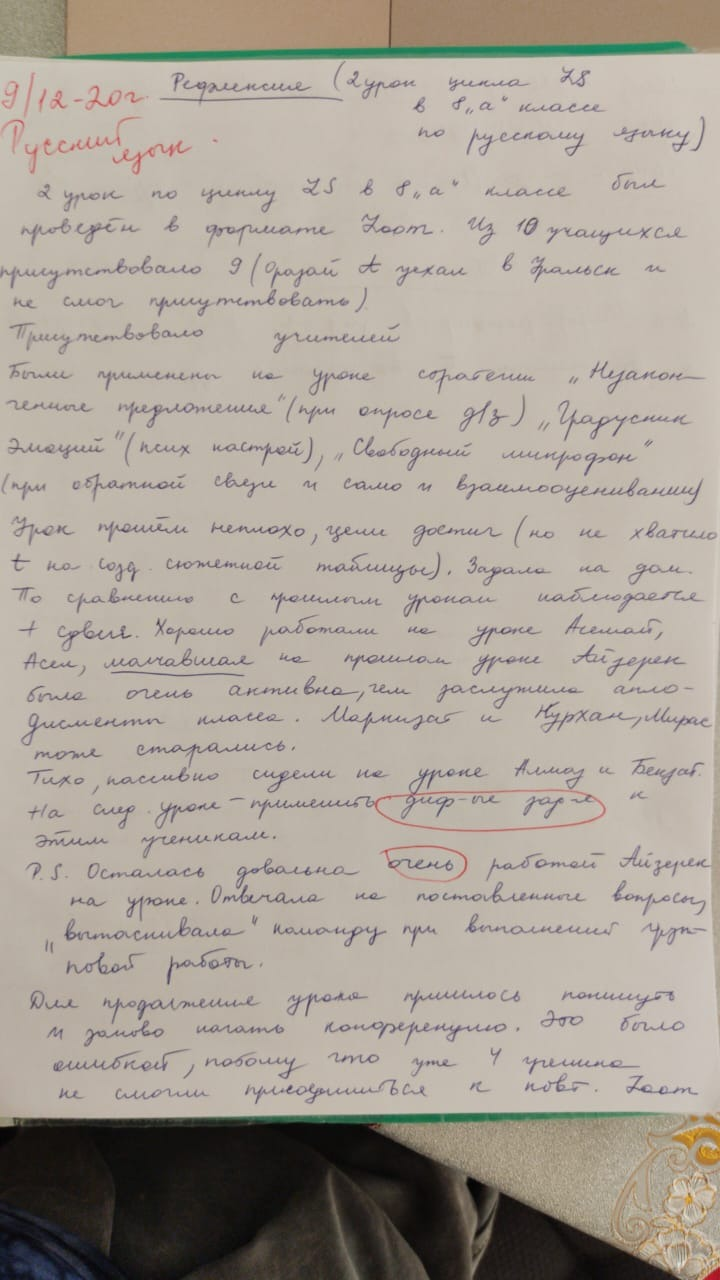 9/12-20г. Рефлексия (2 урок цикла LS
в 8 „а“ классе
по русскому языку)
Русский
язык.
2 урок по циклу LS в 8 „а“ классе был
проведён в формате Zoom. Из 10 учащихся
присутствовало 9 (Оразай t уехал в Уральск и
не смог присутствовать)
Присутствовало учителей
Были применены на уроке соратегии „Незакон-
ченные предложения“ (при опросе д/з) „Градусник
эмоций“ (псих настрой), „Свободный микрофон“
(при обратной связи и само и взаимооценивании)
Урок прошёл неплохо, цели достиг (но не хватило
t на созд. сюжетной таблицы). Задала на дом.
По сравнению с прошлым уроком наблюдается
+ сдвиг. Хорошо работали на уроке Асемай,
Асел, молчавшая на прошлом уроке Айзерек
была очень активна, чем заслужила апло-
дисменты класса. Маржизат и Нурхан, Мирас
тоже старались.
Тихо, пассивно сидели на уроке Алмаз и Бекзат.
На след. уроке – применить диф-ые зад-я к
этим ученикам.
P.S. Осталась довольна очень работой Айзерек
на уроке. Отвечала на поставленные вопросы,
„вытаскивала“ команду при выполнений груп-
повой работы.
Для продолжение урока пришлось покинуть
и заново начать конференцию. Это было
ошибкой, потому что уже 4 ученика
не смогли присоединиться к повт. Zoom